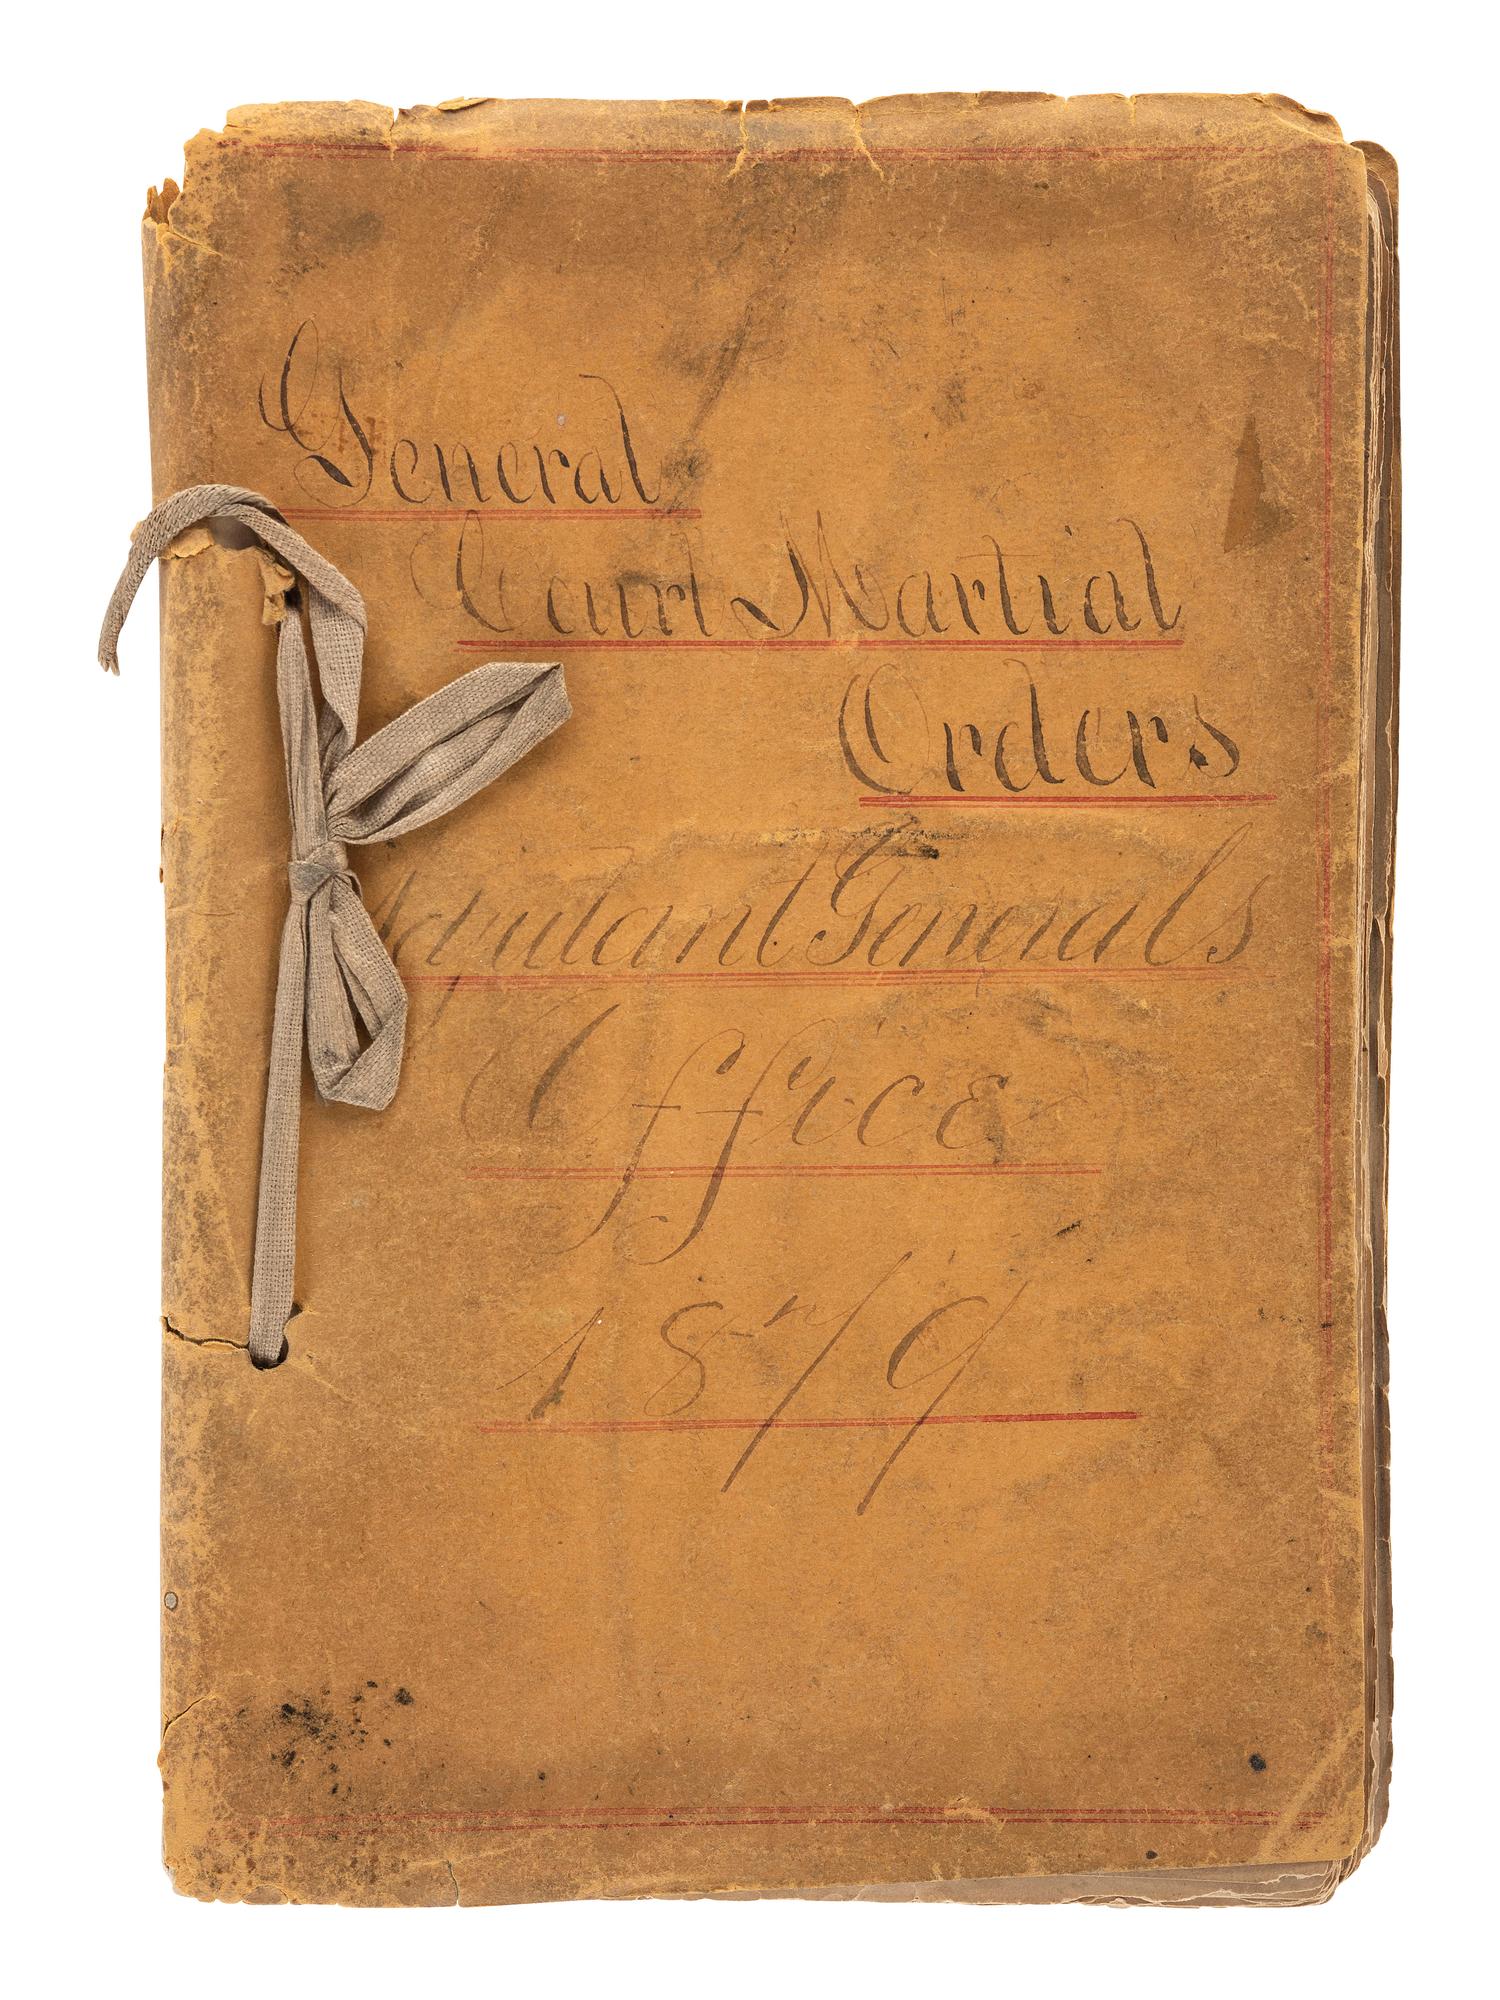 General
Court Martial
Orders
Adjutant Generals
Office
1879